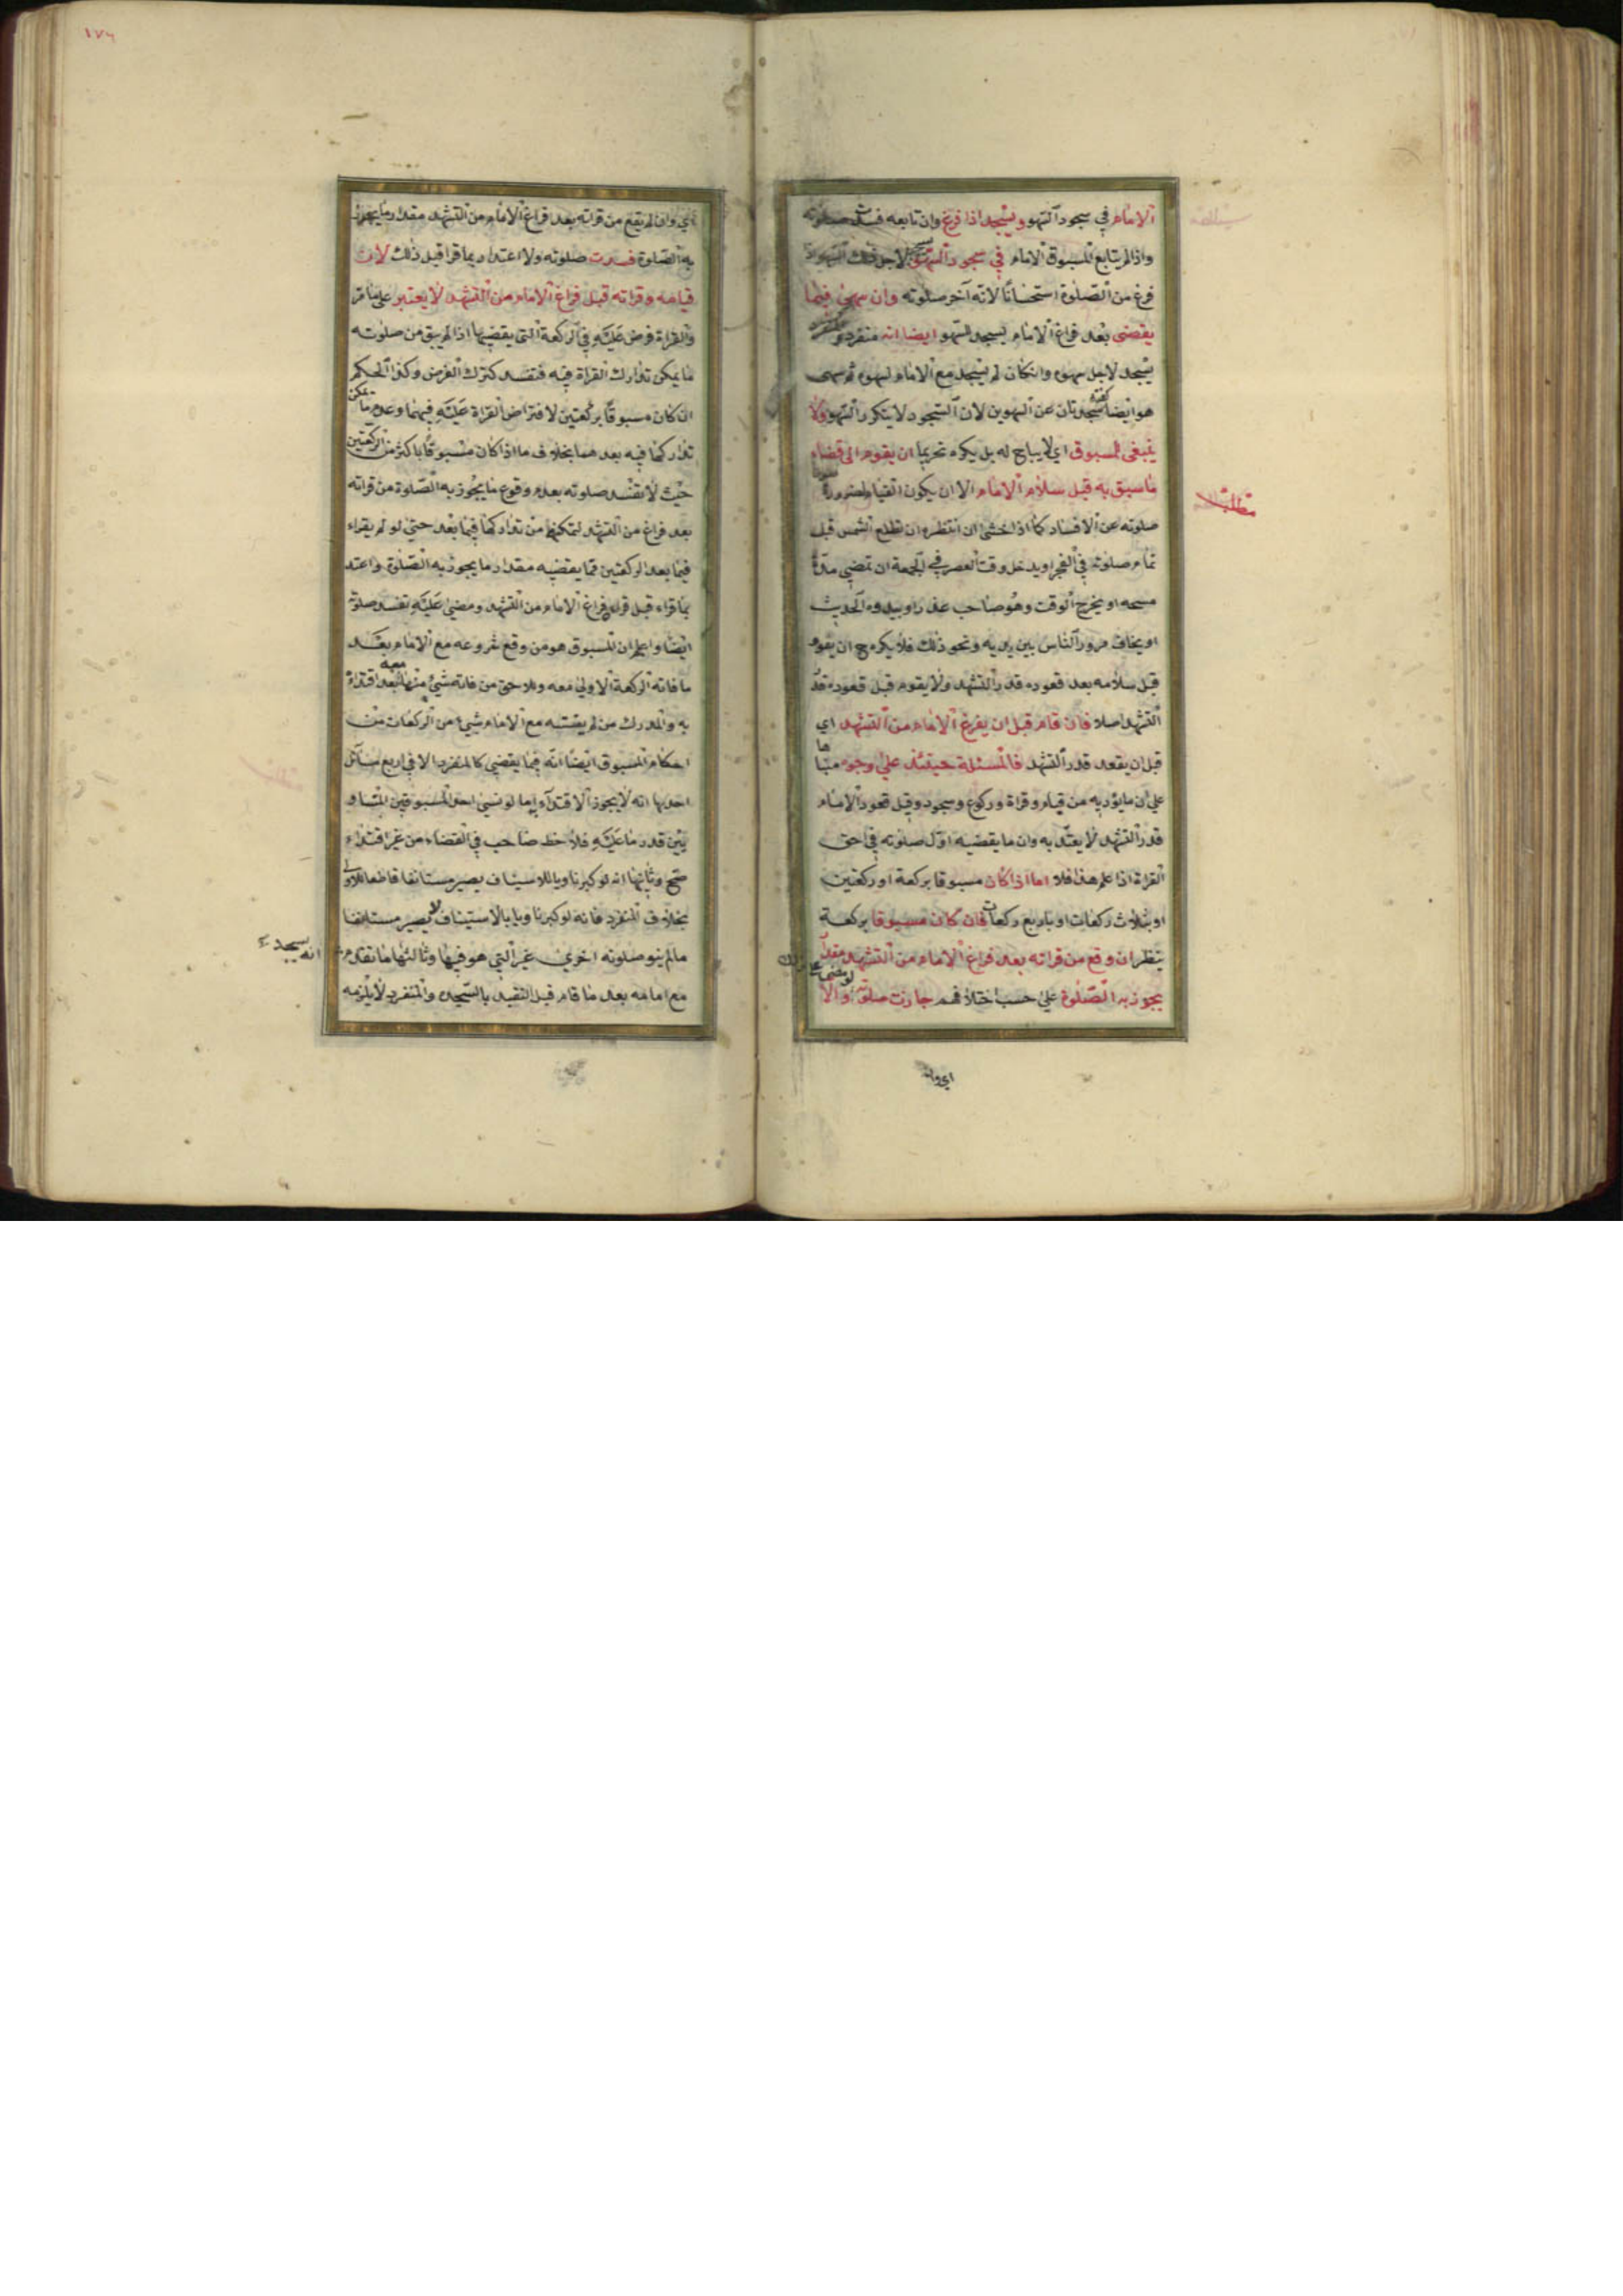 الامام في سجود السهو ويسجد اذا فرغ وان تابعه فسدت صلوته
واذا لم يتابع المسبوق الامام في سجود السهو لاجل ذلك السهو اذا
فرغ من الصلوة استحسانا لانه آخر صلوته وان سهى فيما
يقضى بعد فراغ الامام يسجد للسهو ايضا انه منفرد والمنفرد
يسجد لاجل سهوه وان كان لم يسجد مع الامام لسهوه ثم سهى
هو ايضا كفته سجدتان عن السهوين لان السجود لا يتكرر السهو ولا
ينبغى للمسبوق اي لا يباح له بل يكره تحريما ان يقوم الى قضاء
ما سبق به قبل سلام الامام الا ان يكون القيام لضرورة صون
مطلب
صلوته عن الافساد كما اذا خشى ان انتظره ان تطلع الشمس قبل
تمام صلوته في الفجر او يدخل وقت العصر في الجمعة ان تمضي مدة
مسحه او يخرج الوقت وهو صاحب عذر او يبدوه الحديث
او يخاف مرور الناس بين يديه ونحو ذلك فلا يكره ح ان يقوم
قبل سلامه بعد قعوده قدر التشهد ولا يقوم قبل قعوده قدر
التشهد اصلا فان قام قبل ان يفرغ الامام من التشهد اي
قبل ان يقعد قدر التشهد فالمسئلة حينئذ على وجوه مبناها
على ان ما يؤديه من قيام وقراة وركوع وسجود وقبل قعود الامام
قدر التشهد لا يعتد به وان ما يقضيه اول صلوته في حق
القراة اذا علم هذا فلا اما اذا كان مسبوقا بركعة او ركعتين
او بثلاث ركعات او باربع ركعات فان كان مسبوقا بركعة
ينظر ان وقع من قراته بعد فراغ الامام من التشهد مقدار
يجوز به الصلوة على حسب اختلافهم جازت صلوته والا
اي وان
١٧٦
اي وان لم يقع من قراته بعد فراغ الامام من التشهد مقدار ما يجوز
به الصلوة فسدت صلوته ولا اعتداد بما قرا قبل ذلك لان
قيامه وقراته قبل فراغ الامام من التشهد لا يعتبر على ما مر
والقراة فرض عليه في الركعة التي يقضيها اذا لم يبق من صلوته
ما يمكن تدارك القراة فيه فتفسد كترك الفرض وكذا الحكم
ان كان مسبوقا بركعتين لافتراض القراة عليه فيهما وعدم ما يمكن
تداركها فيه بعدهما بخلاف ما اذا كان مسبوقا باكثر من الركعتين
حيث لا تفسد صلوته بعدم وقوع ما يجوز به الصلوة من قراته
بعد فراغ من التشهد لتمكنه من تداركها فيما بعد حتى لو لم يقراء
فيما بعد الركعتين مما يقضيه مقدار ما يجوز به الصلوة واعتد
بما قراء قبل فراغ الامام من التشهد ومضى عليه تفسد صلوته
ايضا واعلم ان المسبوق هو من وقع شروعه مع الامام بعد
ما فاته الركعة الاولى معه واللاحق من فاته شئ منها معه بعد اقتداء
به والمدرك من لم يفته مع الامام شئ من الركعات من
احكام المسبوق ايضا انه فيما يقضي كالمنفرد الا في اربع مسائل
احديها انه لا يجوز الاقتداء اما لو نسي احد المسبوقين المتساو
يين قدر ما عليه فلاحظ صاحبه في القضاء من غير اقتداء
صح وثانيها انه لو كبر ناويا للاستيناف يصير مستانفا قاطعا للاولى
بخلاف المنفرد فانه لو كبر ناويا بالاستيناف لا يصير مستانفا
ما لم ينو صلوته اخرى غير التي هو فيها وثالثها ما تقدم
انه يسجد
مع امامه بعد ما قام قبل التقييد بالسجدة والمنفرد لا يلزمه